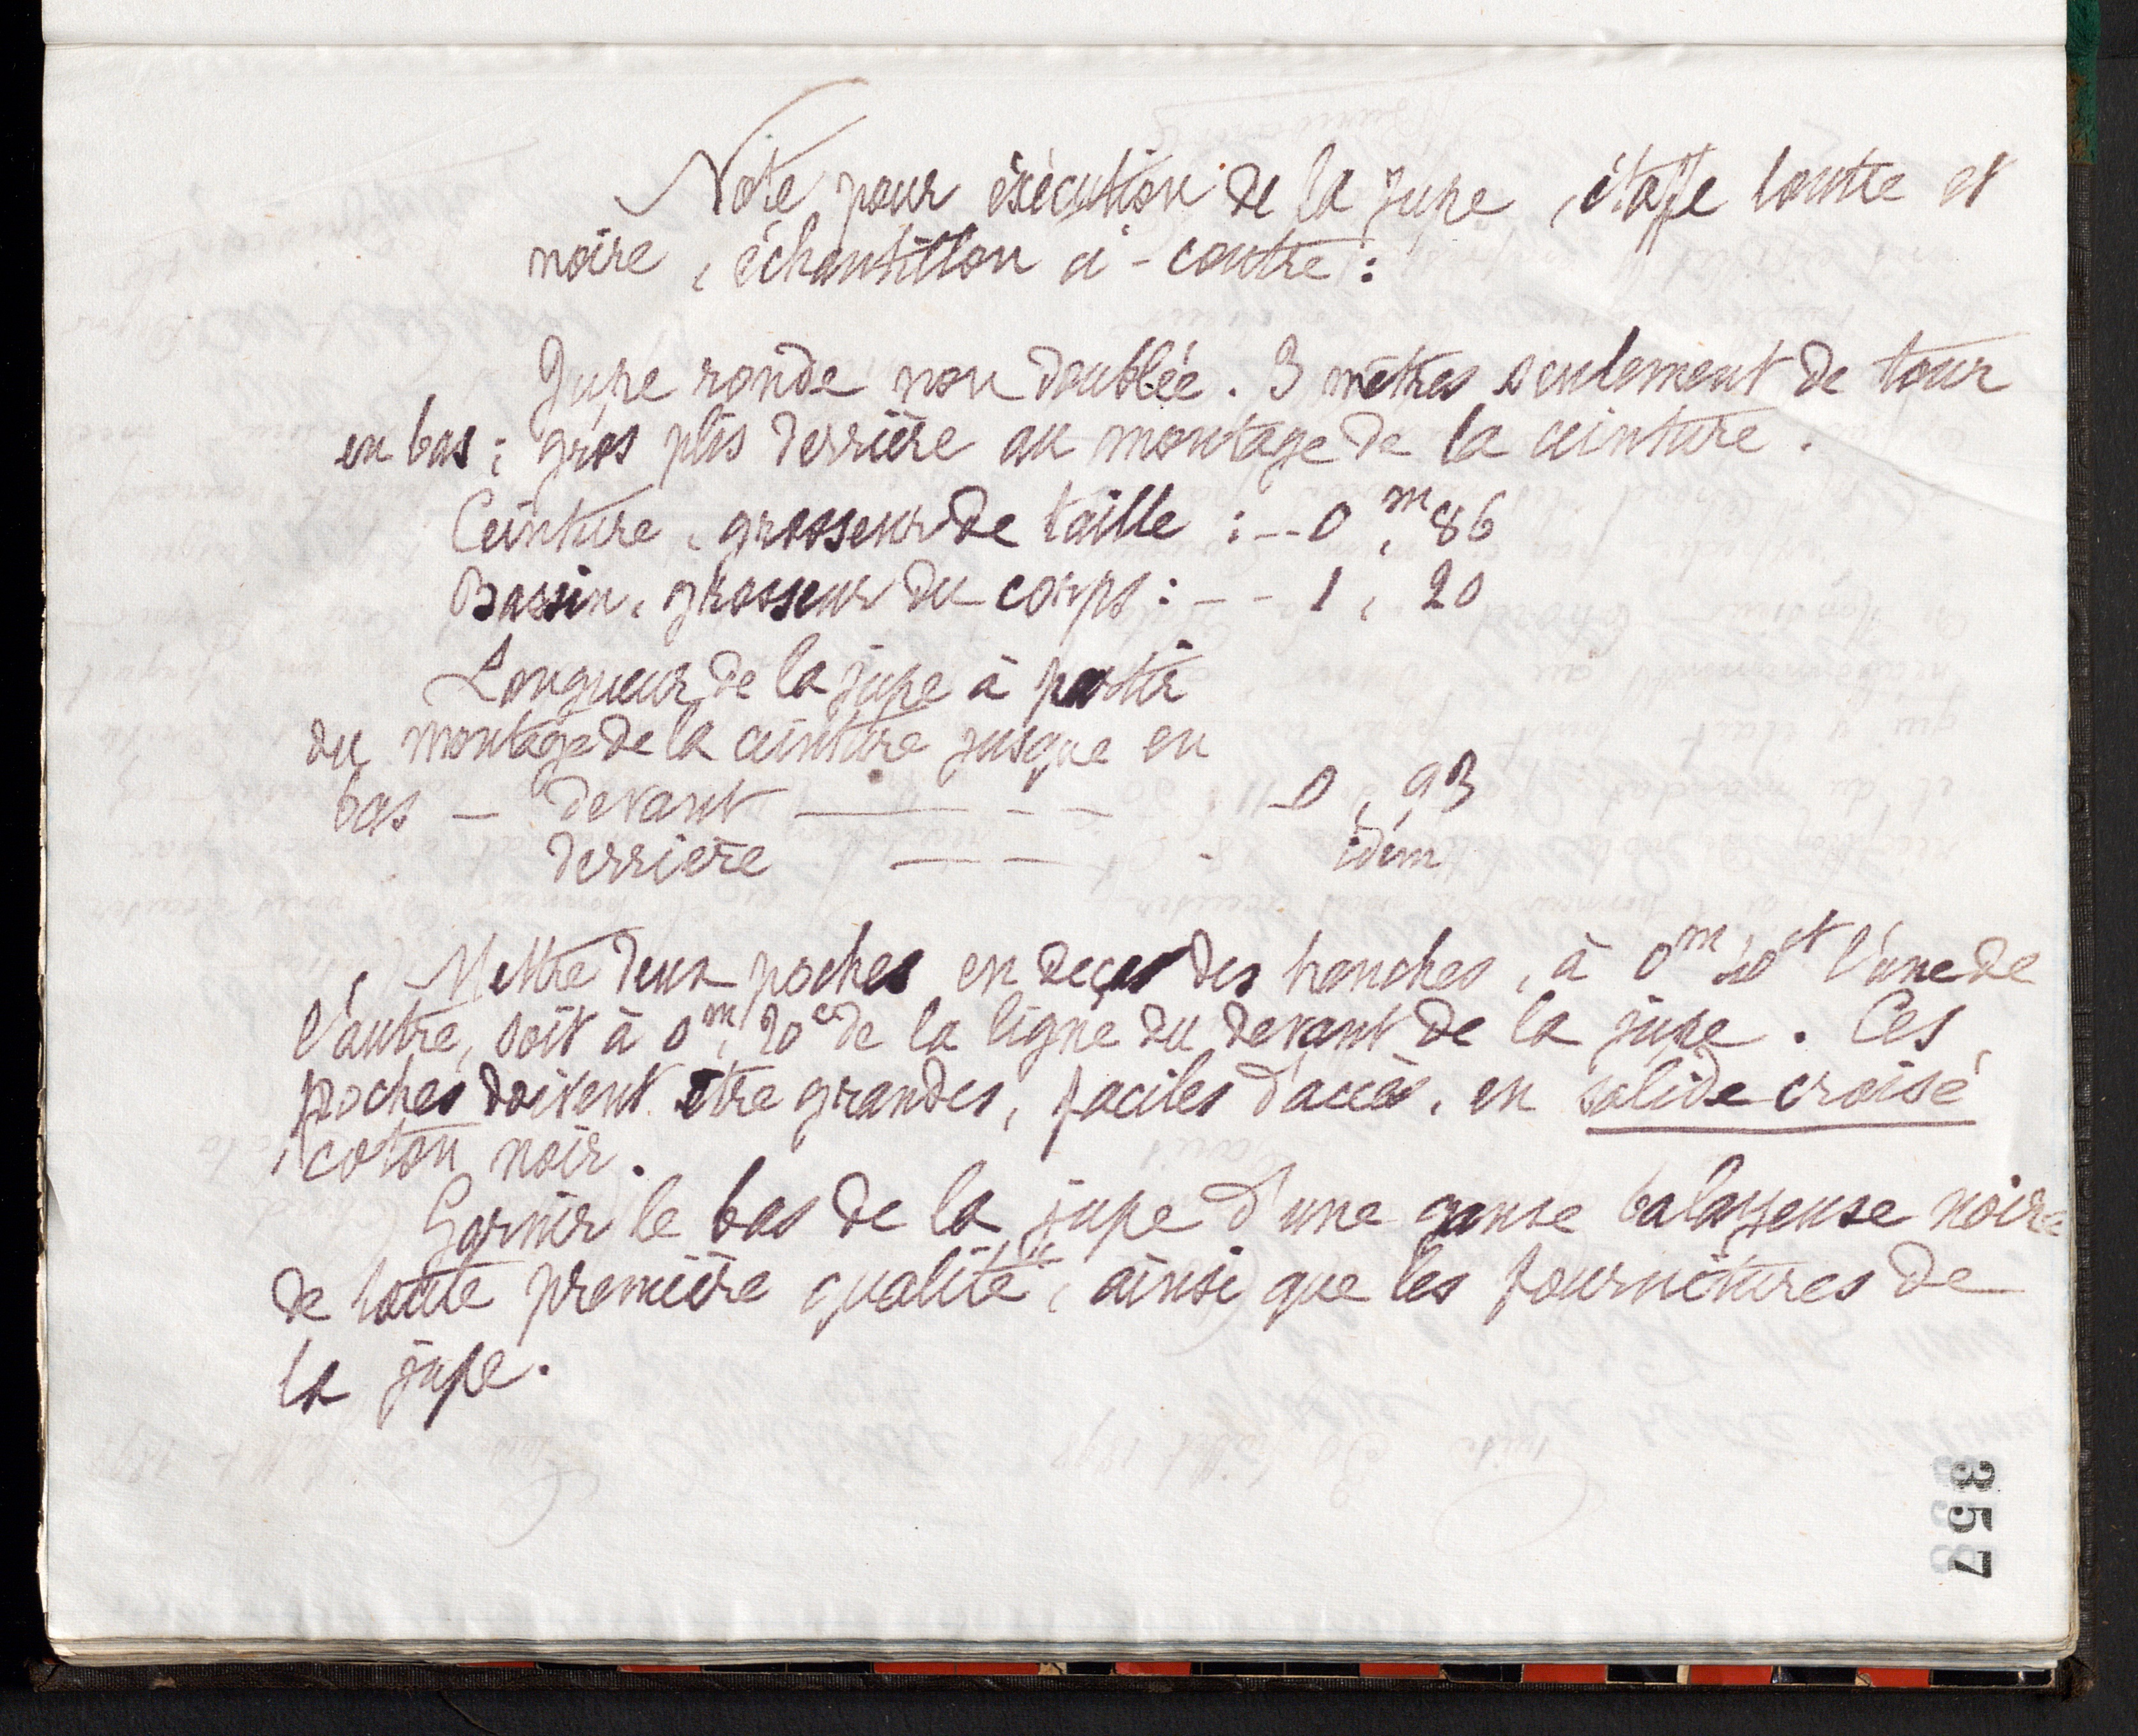 Note pour exécution de la jupe, étoffe loutre et
noire, échantillon ci-contre :
Jupe ronde non doublée. 3 mètres seulement de tour
en bas ; gros plis derrière au montage de la ceinture.
Ceinture, grosseur de taille : -- 0 m, 86
Bassin, grosseur du corps : -- 1, 20
Longueur de la jupe à partir
du montage de la ceinture jusque en
bas - devant --- 0, 93
derrière --- idem
Mettre deux poches en deçà des hanches, à 0m 40ct l'une de
l'autre, soit à 0m, 20c de la ligne du devant de la jupe. Ces
poches doivent être grandes, faciles d'accès, en solide croisé
coton noir.
Garnir le bas de la jupe d'une ganse balayeuse noire
de toute première qualité, ainsi que les fournitures de
la jupe.
357